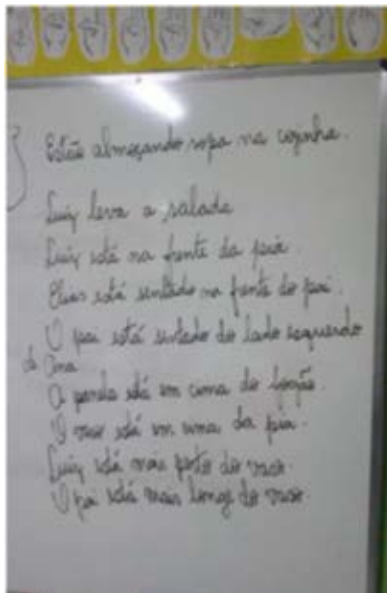 Estão almoçando sopa na cozinha.
Luiz leva a salada
Luiz está na frente da pia.
Elias está sentado na frente do pai.
O pai está sentado do lado esquerdo
de Ana
A panela está em cima do fogão.
O vaso está em cima da pia.
Luiz está mais perto do vaso.
O pai está mais longe do vaso.